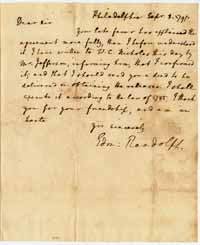 Philadelphia Sept. 2. 1795.
Dear Sir
Your late favor has explained the
agreement more fully, than I before understood
it. I have written to W. C. Nicholas this day by
Mr. Jefferson, informing him, that I confirmed
it; and that I should send you a deed to be
delivered on obtaining the releases. I shall
execute it according to the law of 1785. I thank
you for your friendship, and am in
haste
Yrs sincerely
Edm: Randolph.